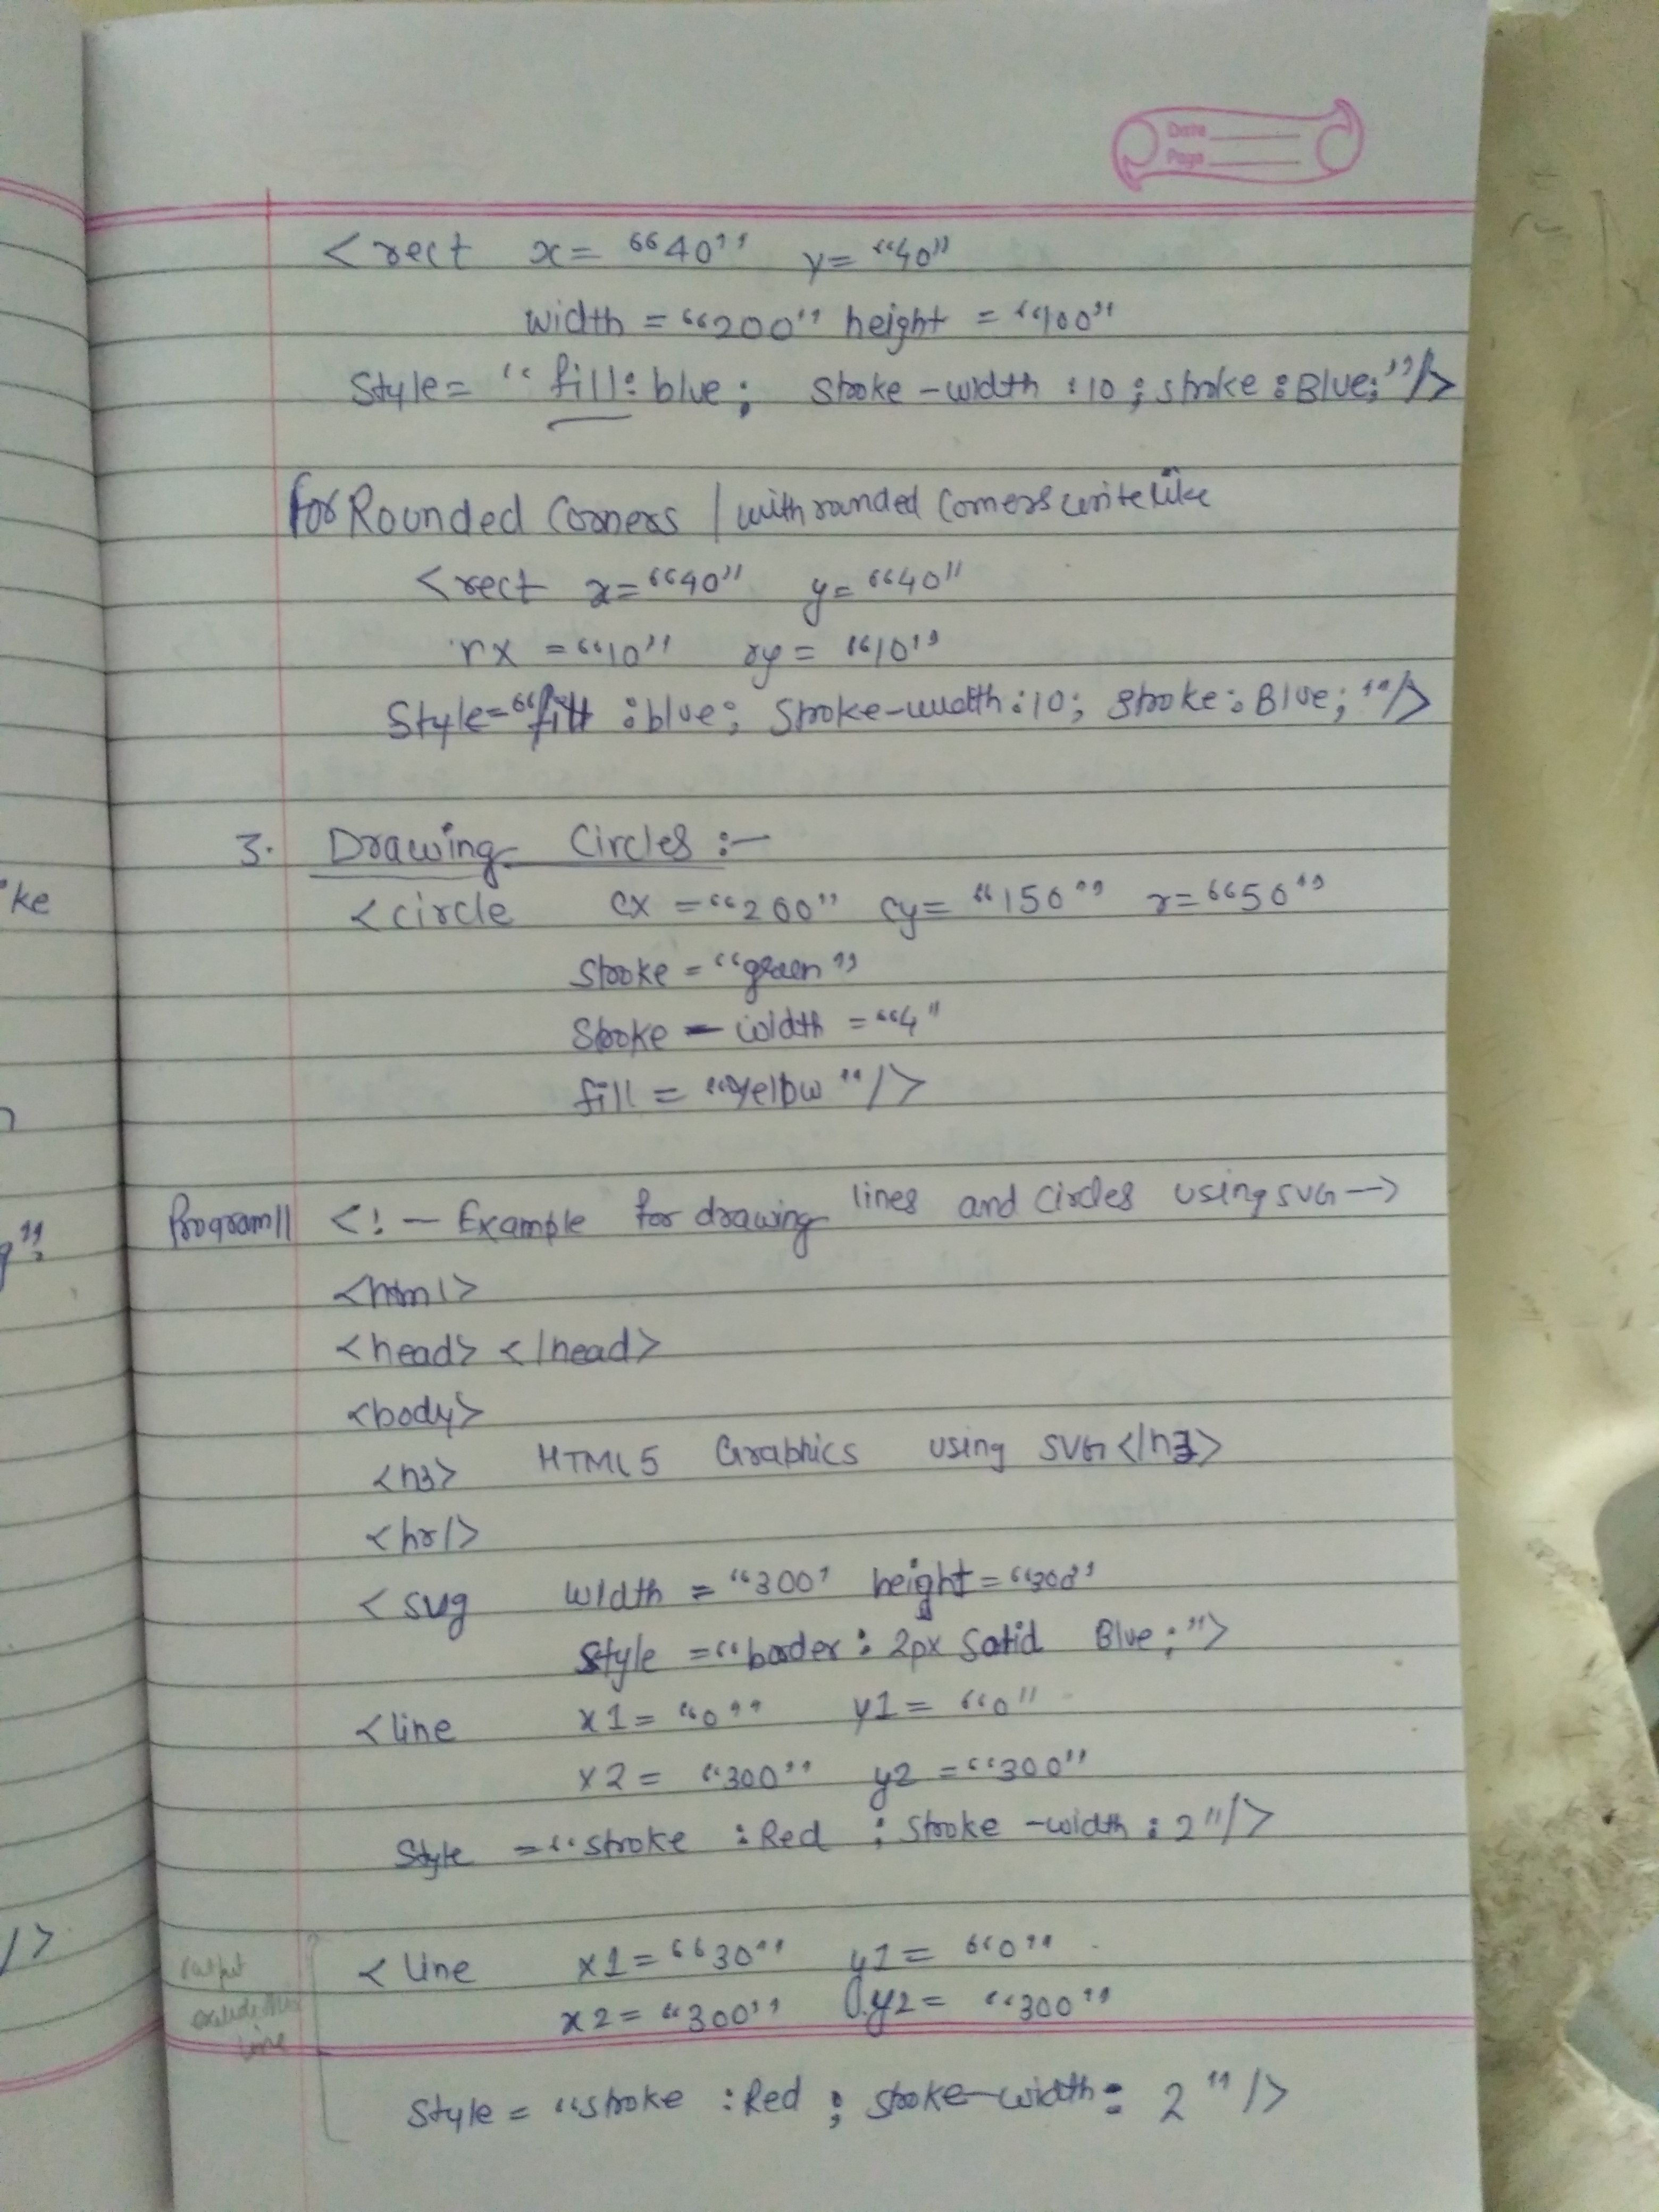 Date
Page
<rect x= "40" y= "40"
width = "200" height = "100"
Style= " fill: blue; Stroke -width :10 ; stroke : Blue;"/>
for Rounded Corners / with rounded Corners write like
<rect x= "40" y= "40"
rx = "10" ry = "10"
Style="fill :blue; Stroke-width:10; stroke: Blue;"/>
3. Drawing Circles :-
ke
<circle cx ="200" cy= "150" r= "50"
Stroke = "green"
Stroke - width = "4"
fill = "yellow "/>
Program|| <! — Example for drawing lines and circles using SVG —>
<html>
<head> </head>
<body>
<h3> HTML5 Graphics using SVG </h3>
<hr/>
<svg width = "300' height = "300"
Style ="border: 2px Solid Blue;">
<line x1= "0" y1= "0"
x2= "300" y2 ="300"
Style ="stroke :Red ; Stroke -width : 2"/>
/>
<line x1= "30" y1= "0"
output
x2= "300" y2= "300"
line
Style = "stroke :Red ; stroke-width: 2 "/>